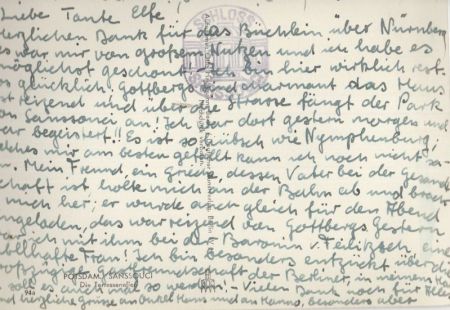 Liebe Tante Else!
herzlichen Dank für das Büchlein über Nürnberg
es war mir von großem Nutzen und ich habe es
möglichst geschont. Ich bin hier wirklich
glücklich, Gottbergs sind charmant das Haus
ist reizend und über die Strasse fängt der Park
von Sanssouci an! Ich war dort gestern morgens und
war begeistert!! Es ist so hübsch wie Nymphenburg;
welches mir am besten gefällt kann ich noch nicht
Mein Freund, ein Grieche, dessen Vater bei der Gesandt
schaft ist, holte mich an der Bahn ab und brach
mich her; er wurde auch gleich für den Abend
eingeladen, das war reizend von Gottbergs. Gestern
war ich mit ihm bei der Baronin v. Feilitzsch eine
fabelhafte Frau. Ich bin besonders entzückt über
Gastfreundschaft der Berliner, in meinem Haus
soll es auch mal so werden! - Vielen Dank noch für Alles
und herzliche Grüsse an Onkel Hans und an Hanno, besonders aber
SCHLOSS
POTSDAM, SANSSOUCI
Die Terrassenallee